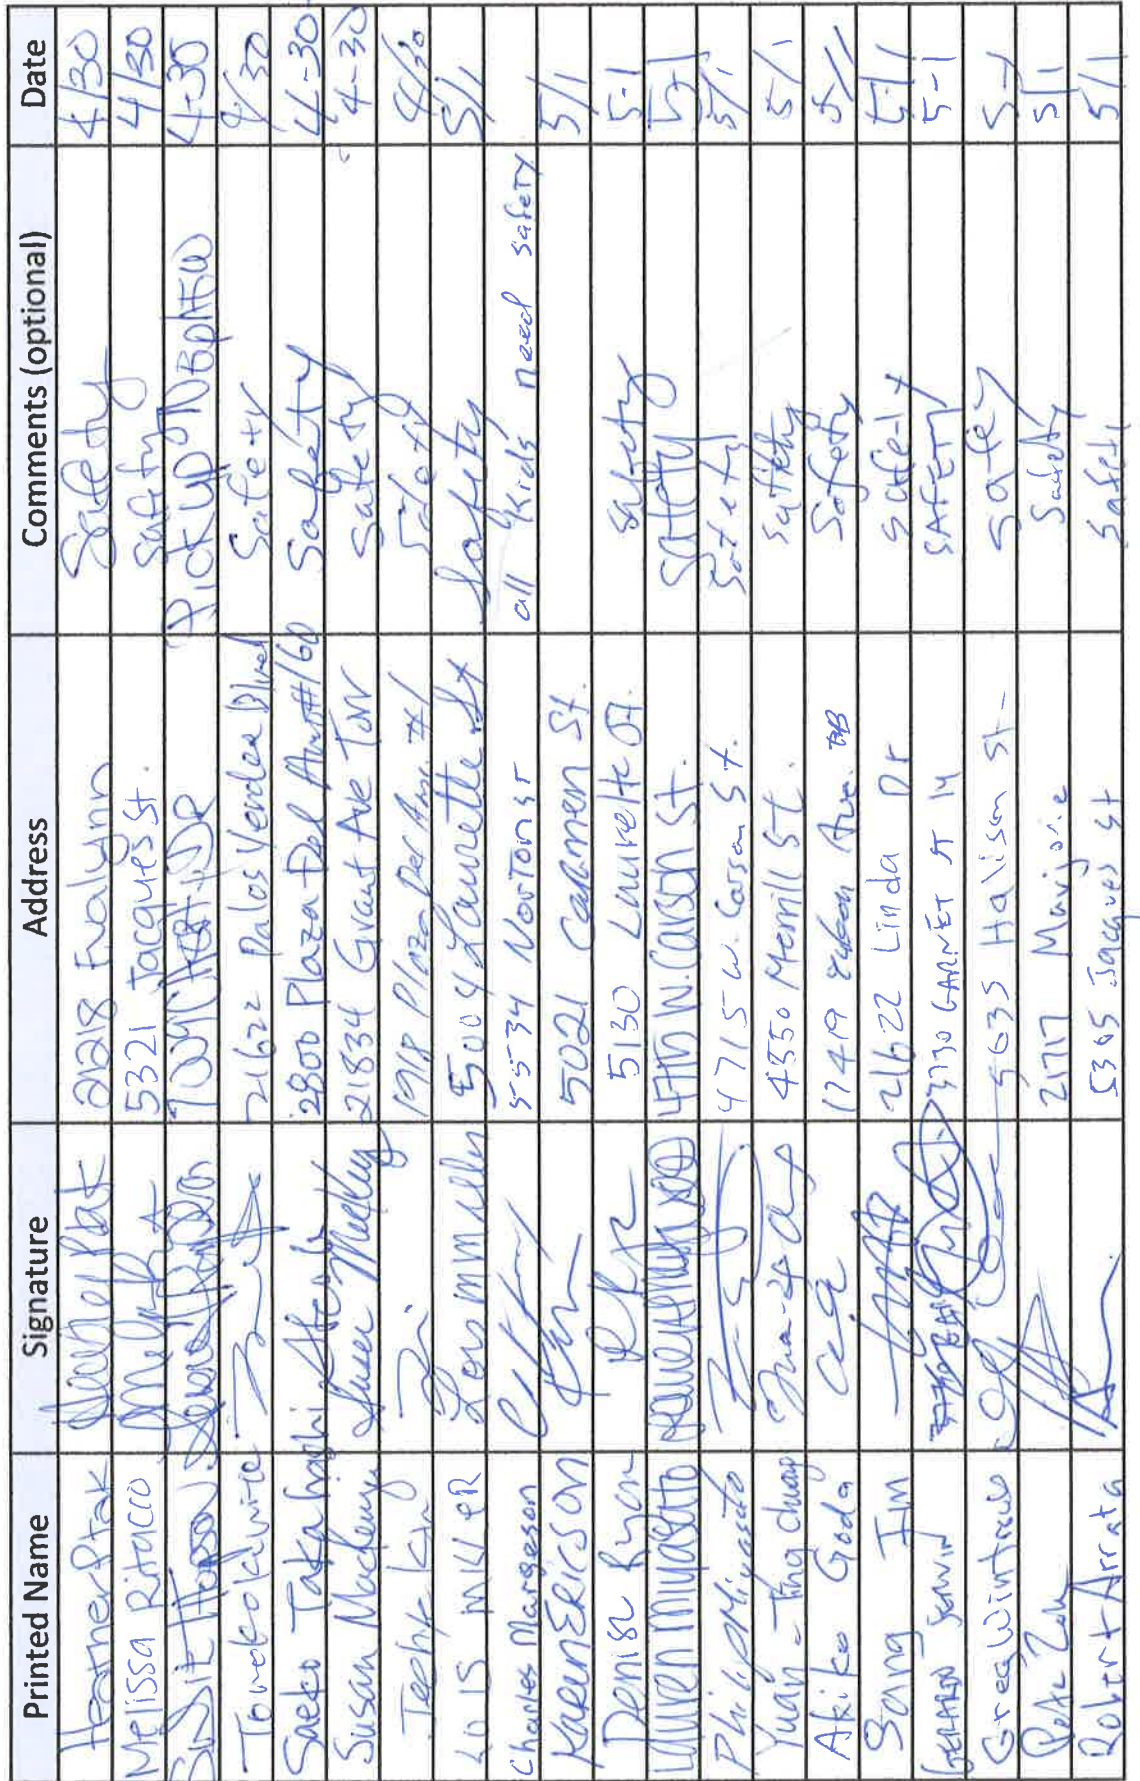 Printed Name Signature Address Comments (optional) Date
Heather Ptak 21218 Evalynn Safety 4/30
Melissa Ritacco 5321 Jacques St. Safty 4/30
Pick up 4-30
21622 Palos Verdes Blvd Safety 4/30
Saeko Takahashi 2800 Plaza Del Amo #160 Safety 4-30
Susan 21834 Grant Ave Torr Safety 4-30
Kim 1918 Plaza Del Amo #1 Safety 4/30
LOIS MILLER Lois Miller 5004 Laurette St Safety 5/1
Charles Margeson 5534 Norton St all kids need safety 5/1
Karen Ericson 5021 Carmen St. 5/1
Denise Ryan 5130 Laurette St. Safety 5-1
Lauren Miyasato 4715 W. Carson St. Safety 5-1
Philip Miyasato 4715 W. Carson St. Safety 5/1
Yuan-Ting Chuang 4550 Merrill St. Safety 5/1
Akiko Goda 17419 Ave. Safety 5/1
Sang Im 21622 Linda Dr Safety 5-1
3730 GARNET ST 14 SAFETY 5-1
Greg 5635 Halison St Safety 5-1
Pete 21717 Marjorie Safety 5/1
Robert Arrata 5365 Jacques St Safety 5/1